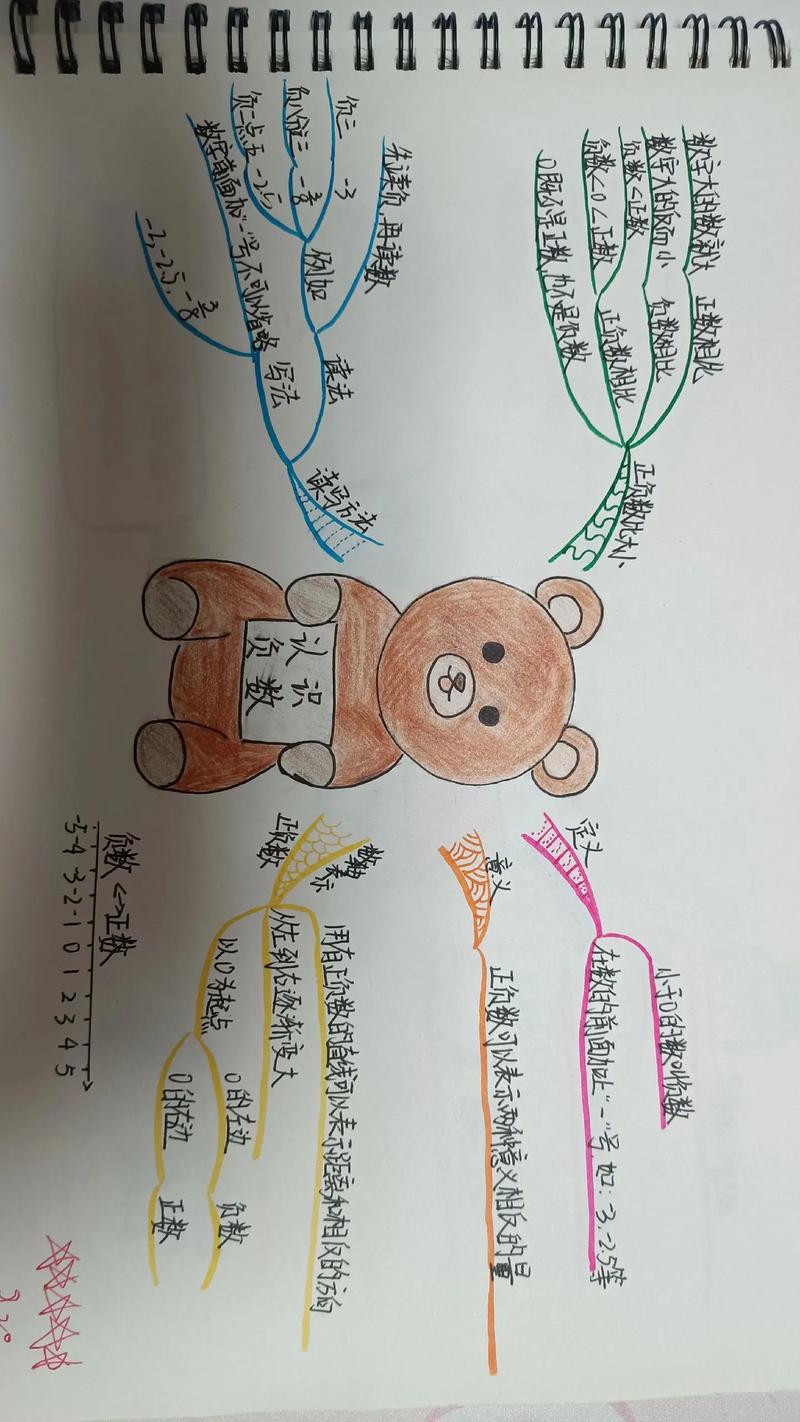 认识
负数
定义
小于0的数叫负数
在数的前面加上“-”号,如:-3,-2.5等
意义
正负数可以表示两种意义相反的量
正负数
数轴表示
用有正负数的直线可以表示距离和相反的方向
从左到右逐渐变大
以0为起点
0的左边 负数
0的右边 正数
负数<->正数
-5 -4 -3 -2 -1 0 1 2 3 4 5
正负数比大小
正数相比
数字大的数就大
负数相比
数字大的反而小
正负数相比
负数<正数
负数<0<正数
0既不是正数,也不是负数
读写方法
读法
先读负,再读数
例如
负三 -3
负八分之三 -3/8
负二点五 -2.5
写法
数字前面加“-”号不可以省略